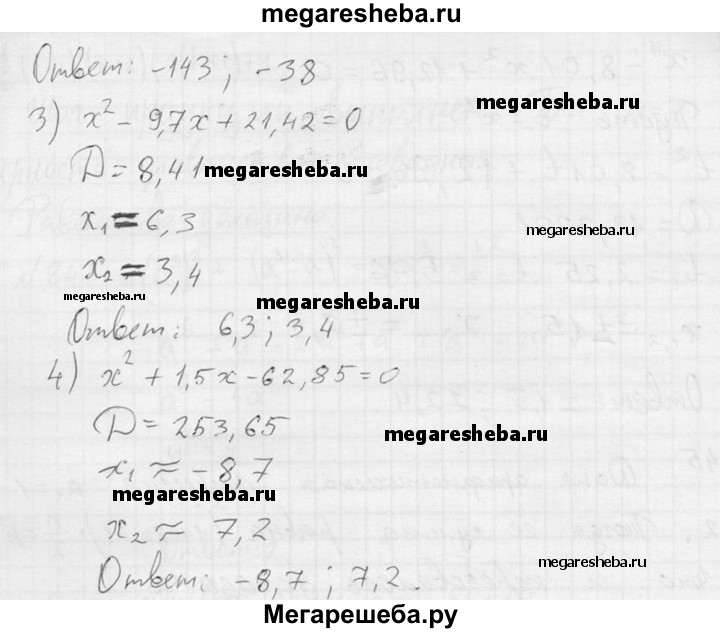 megaresheba.ru
Ответ: -143, -38
3) x² - 9,7x + 21,42 = 0
megaresheba.ru
D = 8,41
megaresheba.ru
x₁ = 6,3
megaresheba.ru
x₂ = 3,4
megaresheba.ru
megaresheba.ru
Ответ: 6,3; 3,4
4) x² + 1,5x - 62,85 = 0
D = 253,65
megaresheba.ru
x₁ ≈ -8,7
megaresheba.ru
x₂ ≈ 7,2
megaresheba.ru
Ответ: -8,7; 7,2.
Мегарешеба.ру